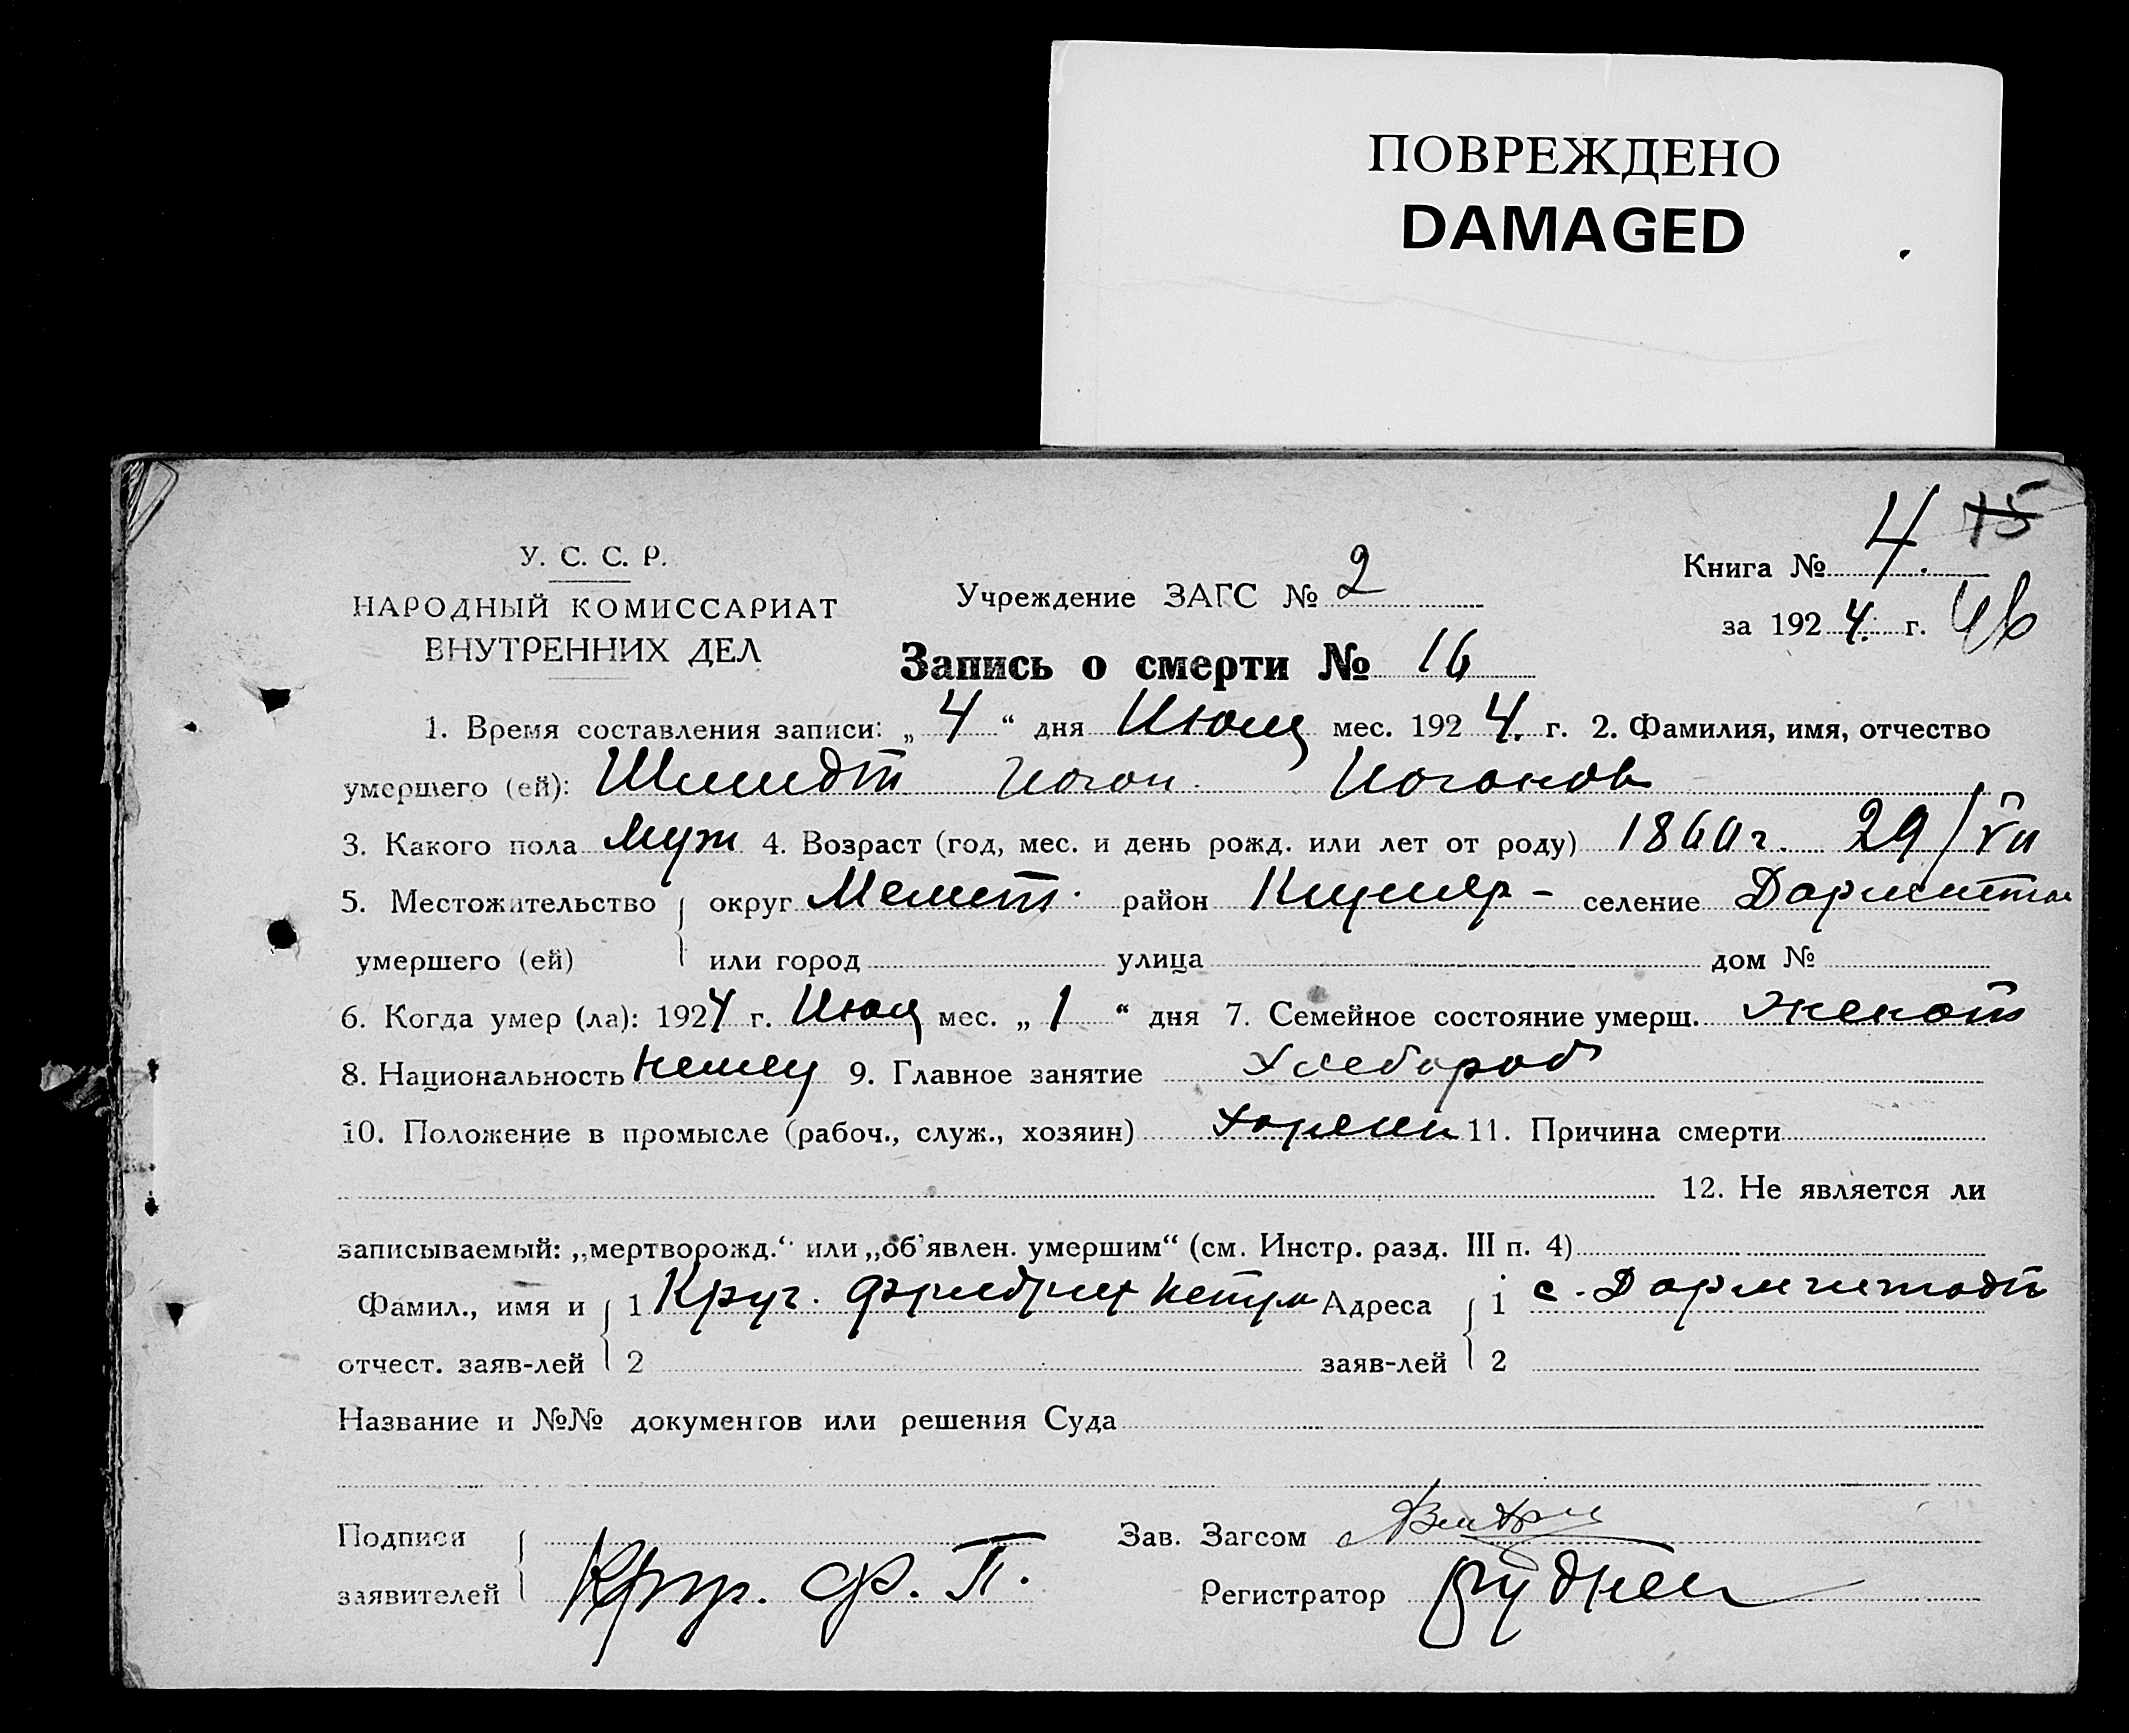 ПОВРЕЖДЕНО
DAMAGED
15
У. С. С. Р.
НАРОДНЫЙ КОМИССАРИАТ
ВНУТРЕННИХ ДЕЛ
Учреждение ЗАГС № 2
Книга № 4
за 1924 г. 46
Запись о смерти № 16
1. Время составления записи: „ 4 “ дня Июля мес. 1924. г. 2. Фамилия, имя, отчество
умершего (ей): Шмидт Иоган Иоганов
3. Какого пола муж 4. Возраст (год, мес. и день рожд. или лет от роду) 1860 г. 29/VII
5. Местожительство округ Мелит. район селение Дармшта
умершего (ей) или город улица дом №
6. Когда умер (ла): 1924 г. Июля мес. „ 1 “ дня 7. Семейное состояние умерш. женат
8. Национальность немец 9. Главное занятие Хлебороб
10. Положение в промысле (рабоч., служ., хозяин) 11. Причина смерти
12. Не является ли
записываемый: „мертворожд.“ или „об'явлен. умершим“ (см. Инстр. разд. III п. 4)
Фамил., имя и 1 Круг. Фридрих Петров Адреса 1 с. Дармштадт
отчест. заяв-лей 2 заяв-лей 2
Название и №№ документов или решения Суда
Подписи Зав. Загсом
заявителей Круг. Ф. П. Регистратор